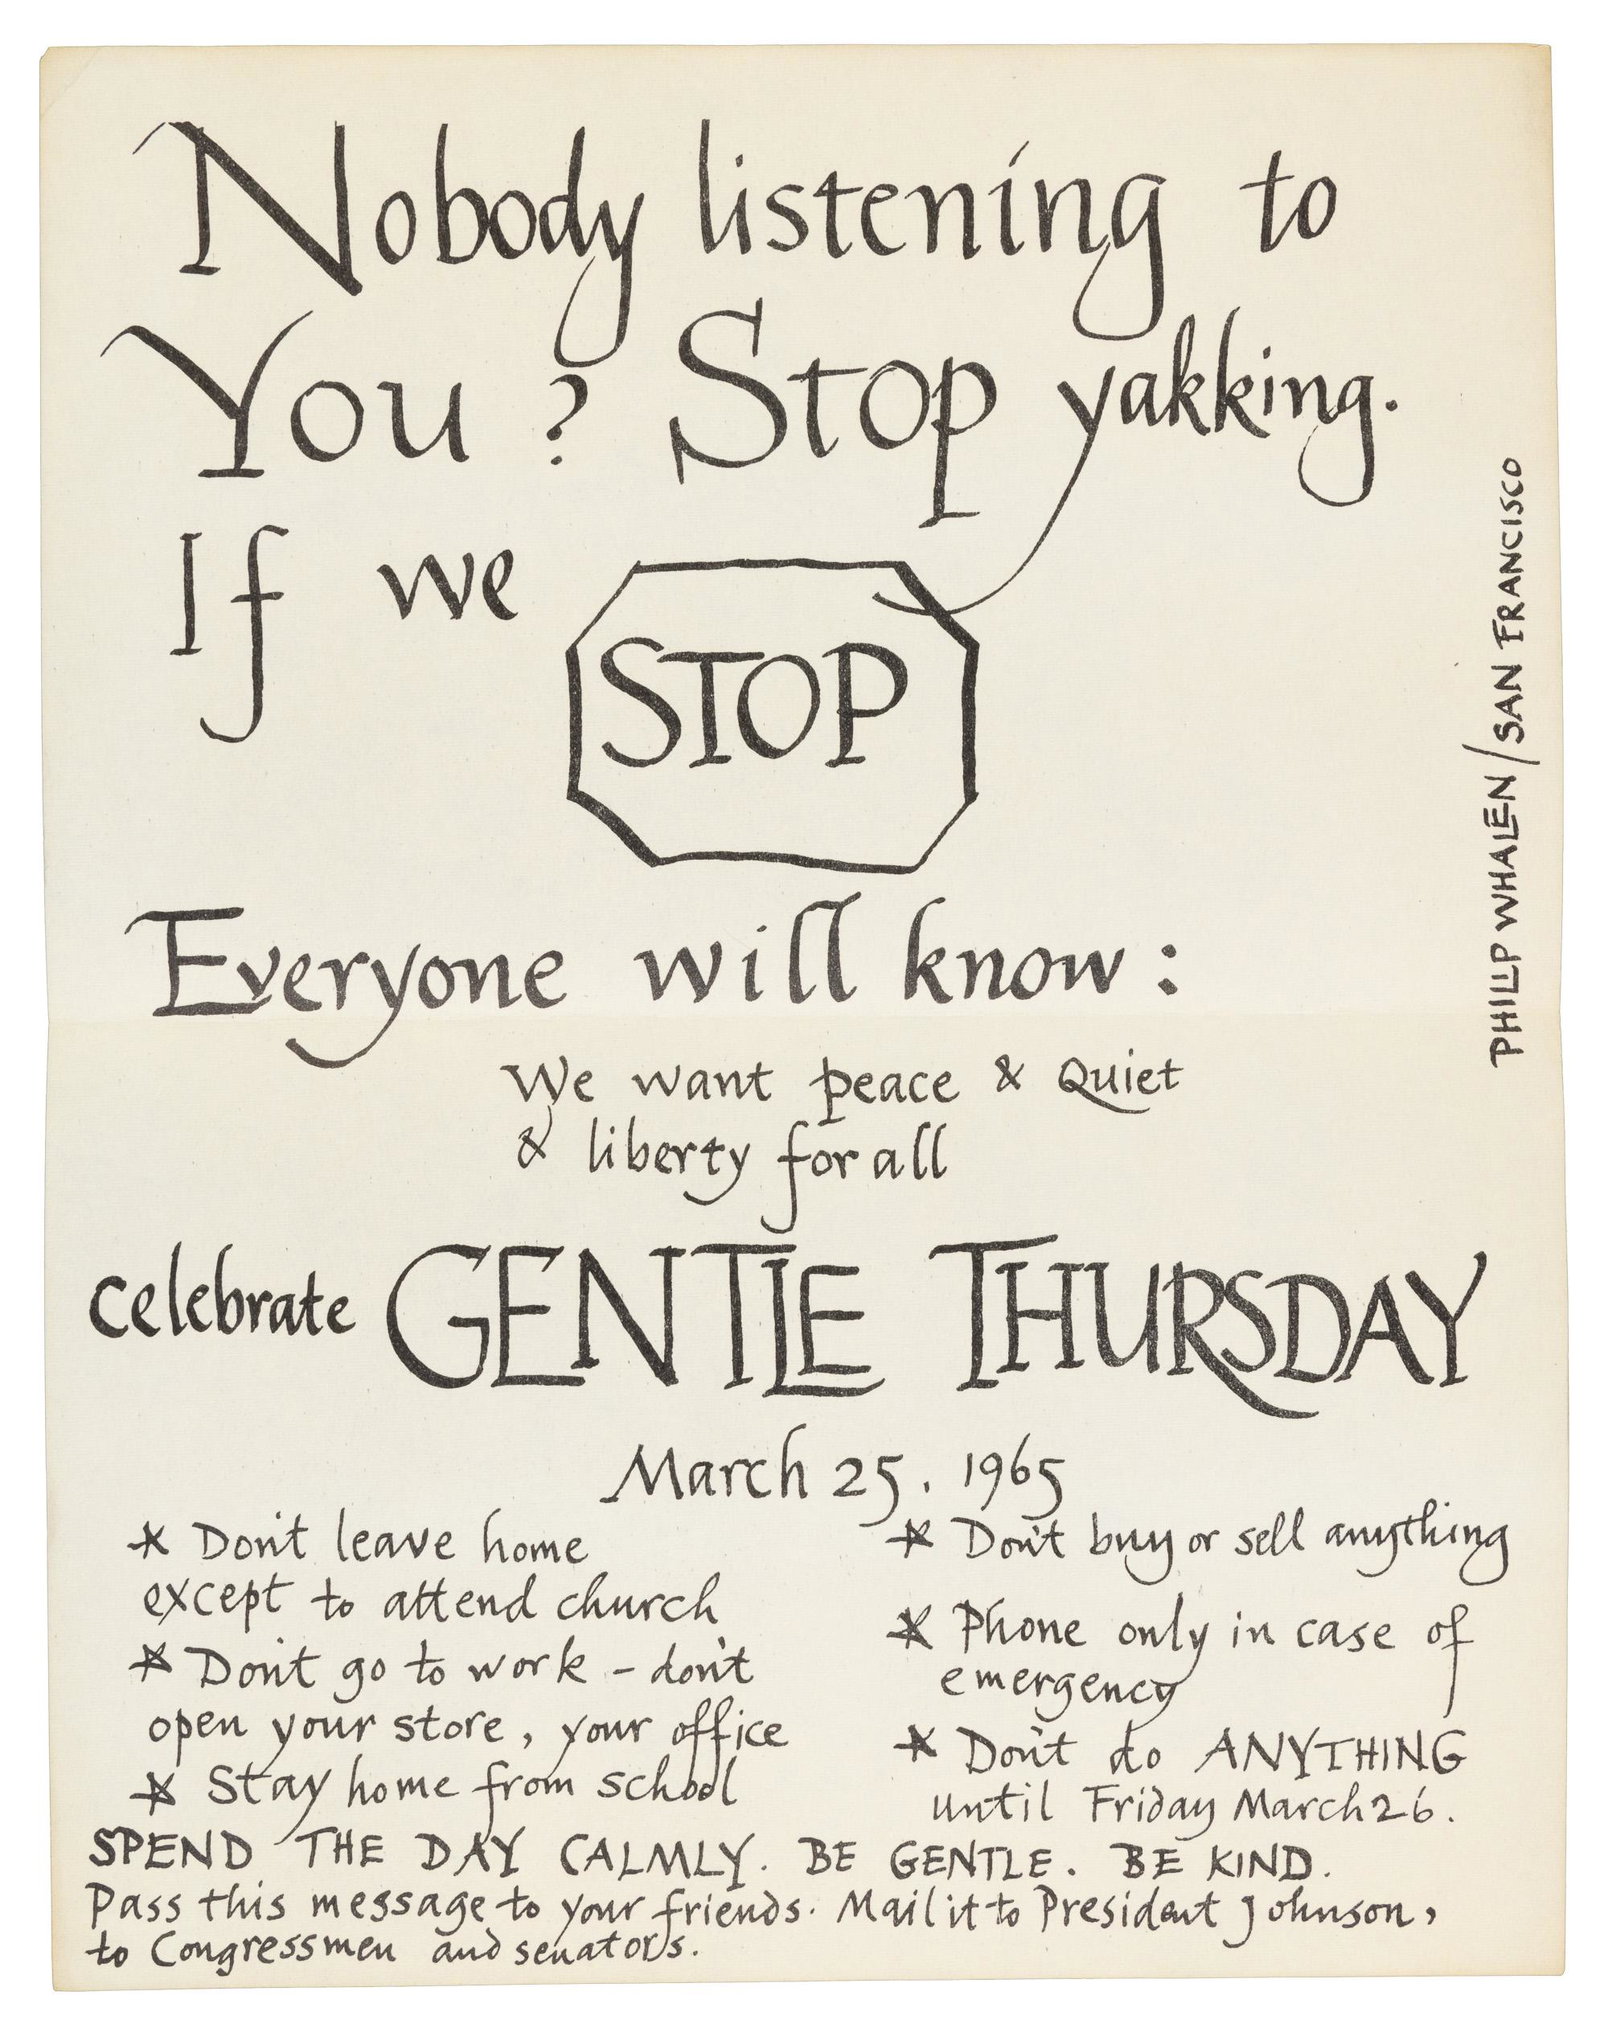 Nobody listening to
You? Stop yakking.
If we
STOP
Everyone will know:
We want peace & Quiet
& liberty for all
celebrate GENTLE THURSDAY
March 25, 1965
* Don't leave home
except to attend church
* Don't go to work - don't
open your store, your office
* Stay home from school
* Don't buy or sell anything
* Phone only in case of
emergency
* Don't do ANYTHING
until Friday March 26.
SPEND THE DAY CALMLY. BE GENTLE. BE KIND.
Pass this message to your friends. Mail it to President Johnson,
to Congressmen and senators.
PHILIP WHALEN / SAN FRANCISCO